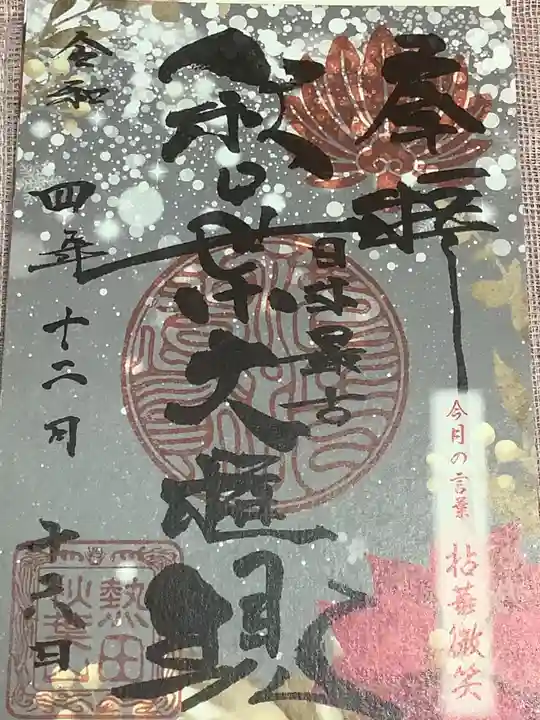 奉拝
日本最古
秋葉大権現
令和四年十二月十八日
今月の言葉 拈華微笑
熱田
秋葉山